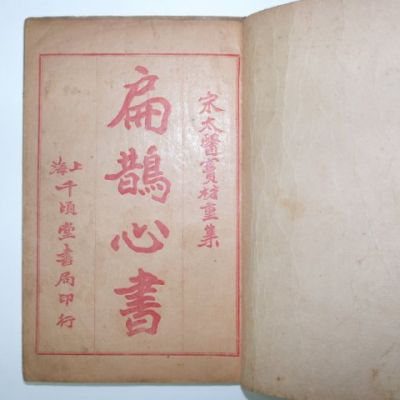 宋太醫竇材重集
扁鵲心書
上海千頃堂書局印行